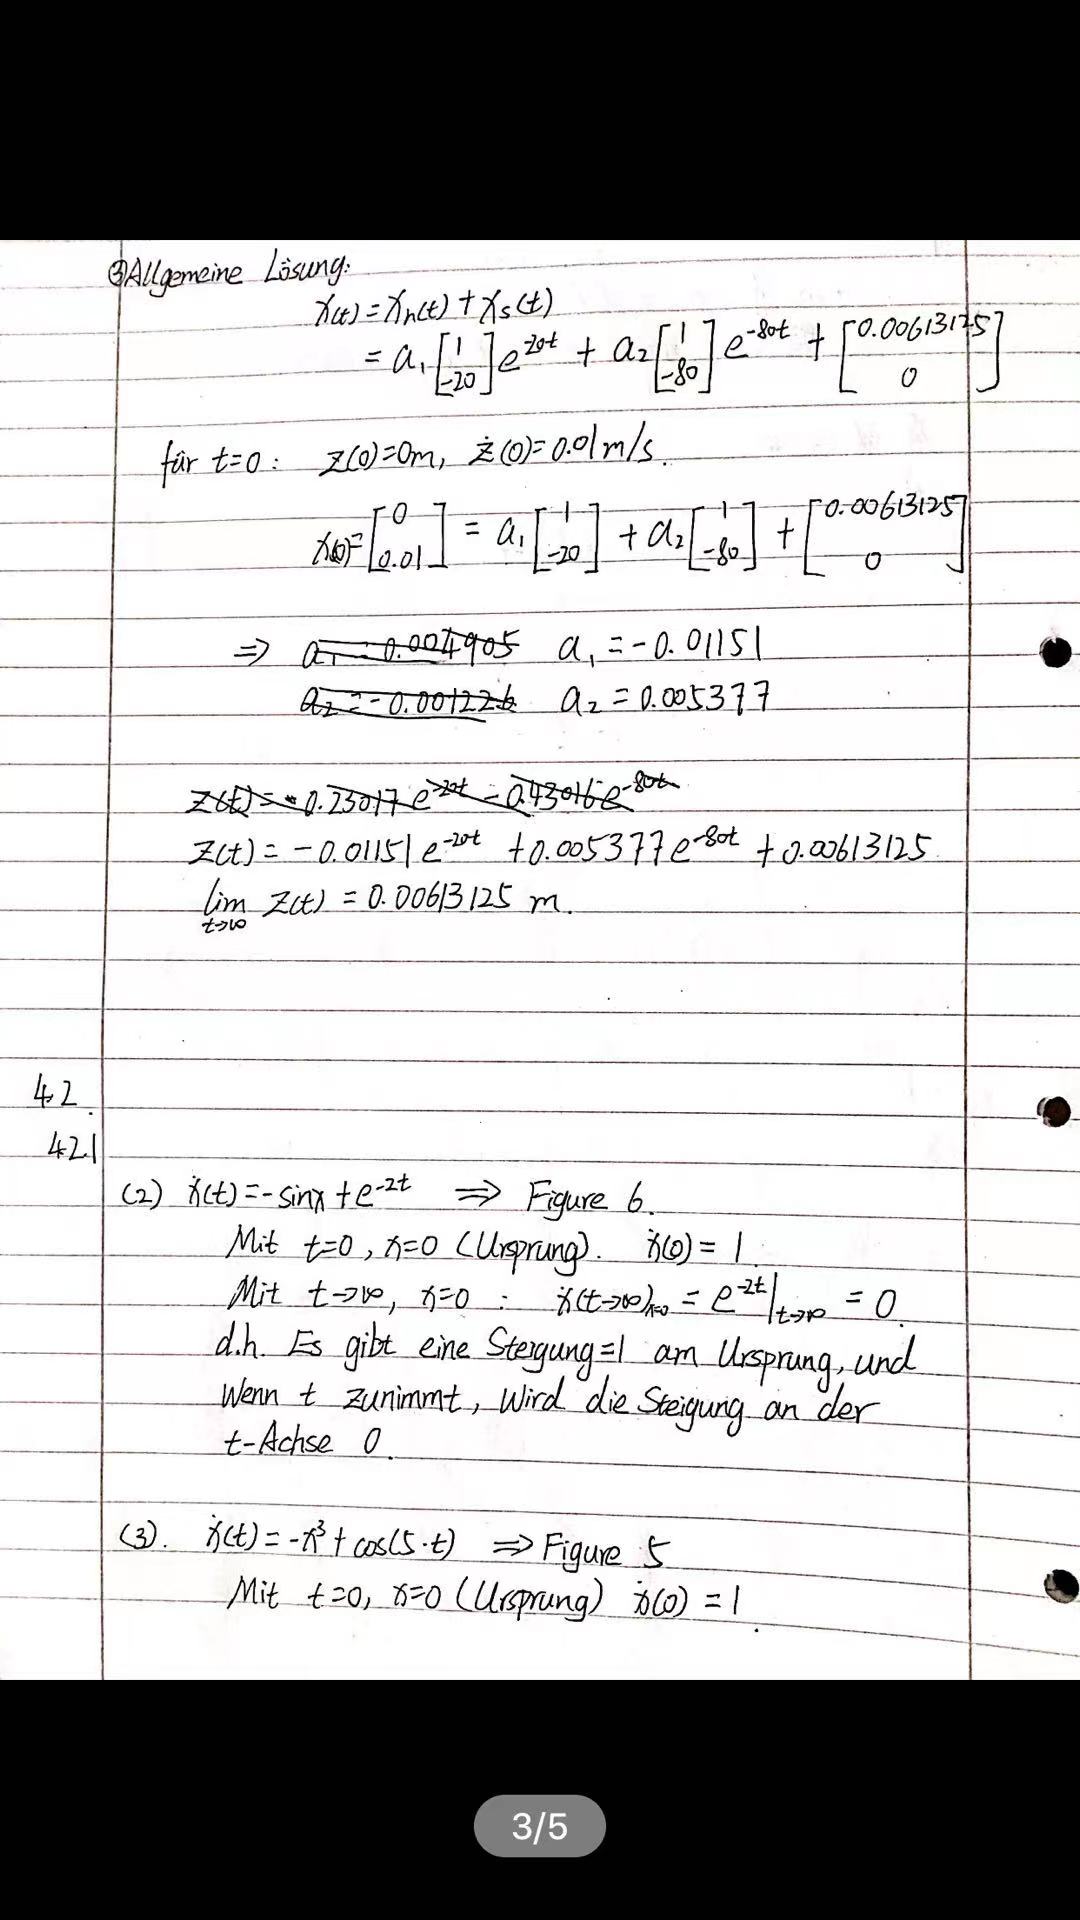 ③Allgemeine Lösung:
x(t) = xh(t) + xs(t)
= a₁ [1 -20] e^-20t + a₂ [1 -80] e^-80t + [0.00613125 0]
für t=0: z(0)=0m, ż(0)=0.01m/s.
x(0)= [0 0.01] = a₁ [1 -20] + a₂ [1 -80] + [0.00613125 0]
⇒ a₁ = 0.004905 a₁ = -0.01151
a₂ = -0.001226 a₂ = 0.005377
z(t) = -0.23017 e^-20t - 0.43016 e^-80t
z(t) = -0.01151 e^-20t + 0.005377 e^-80t + 0.00613125
lim t→∞ z(t) = 0.00613125 m.
4.2.
4.2.1
(2) ẋ(t) = -sinx + e^-2t ⇒ Figure 6.
Mit t=0, x=0 (Ursprung). ẋ(0) = 1.
Mit t→∞, x=0 : ẋ(t→∞)x=0 = e^-2t|t→∞ = 0.
d.h. Es gibt eine Steigung=1 am Ursprung, und
Wenn t zunimmt, wird die Steigung an der
t-Achse 0.
(3). ẋ(t) = -x³ + cos(5·t) ⇒ Figure 5
Mit t=0, x=0 (Ursprung) ẋ(0) = 1.
3/5